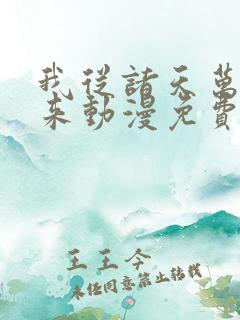 我從諸天萬
來動漫免費
王王今
未經同意禁止轉載